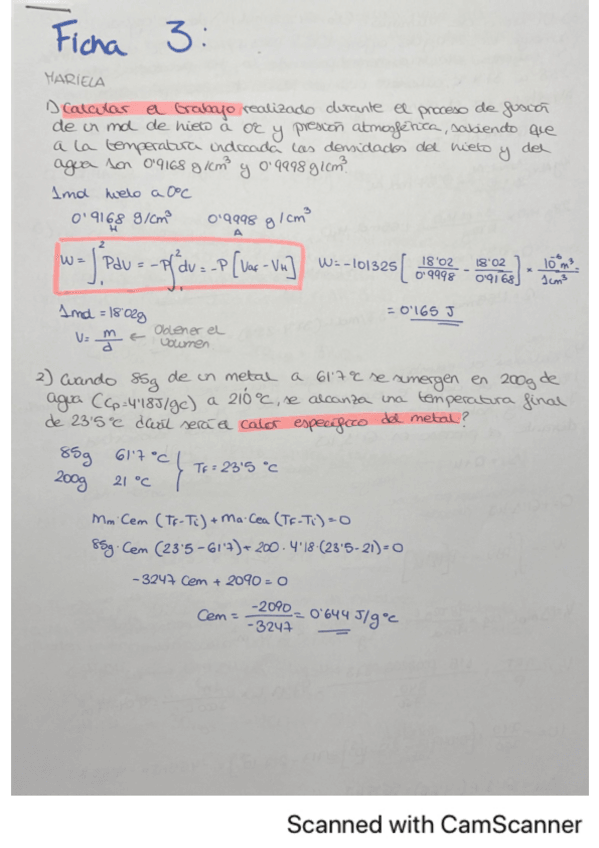 Ficha 3:
MARIELA
1) Calcular el trabajo realizado durante el proceso de fusión
de un mol de hielo a 0ºc y presión atmosférica, sabiendo que
a la temperatura indicada las densidades del hielo y del
agua son 0'9168 g/cm³ y 0'9998 g/cm³.
1mol hielo a 0ºC
0'9168 g/cm³ 0'9998 g/cm³
H A
W = ∫₁² PdV = -P∫₁² dv = -P [Vaf - VH] W = -101325 [ 18'02/0'9998 - 18'02/0'9168 ] * 10⁻⁶m³/1cm³ =
1mol = 18'02g = 0'165 J
V = m/d ← Obtener el
volumen
2) Cuando 85g de un metal a 61'7ºc se sumergen en 200g de
agua (Cp=4'18J/gc) a 21'0ºc, se alcanza una temperatura final
de 23'5ºc ¿cuál será el calor específico del metal?
85g 61'7ºc
200g 21ºc } TF = 23'5ºc
Mm·Cem (TF-Ti) + Ma·Cea (TF-Ti) = 0
85g·Cem (23'5-61'7) + 200·4'18·(23'5-21) = 0
-3247 Cem + 2090 = 0
Cem = -2090/-3247 = 0'644 J/gºc
Scanned with CamScanner